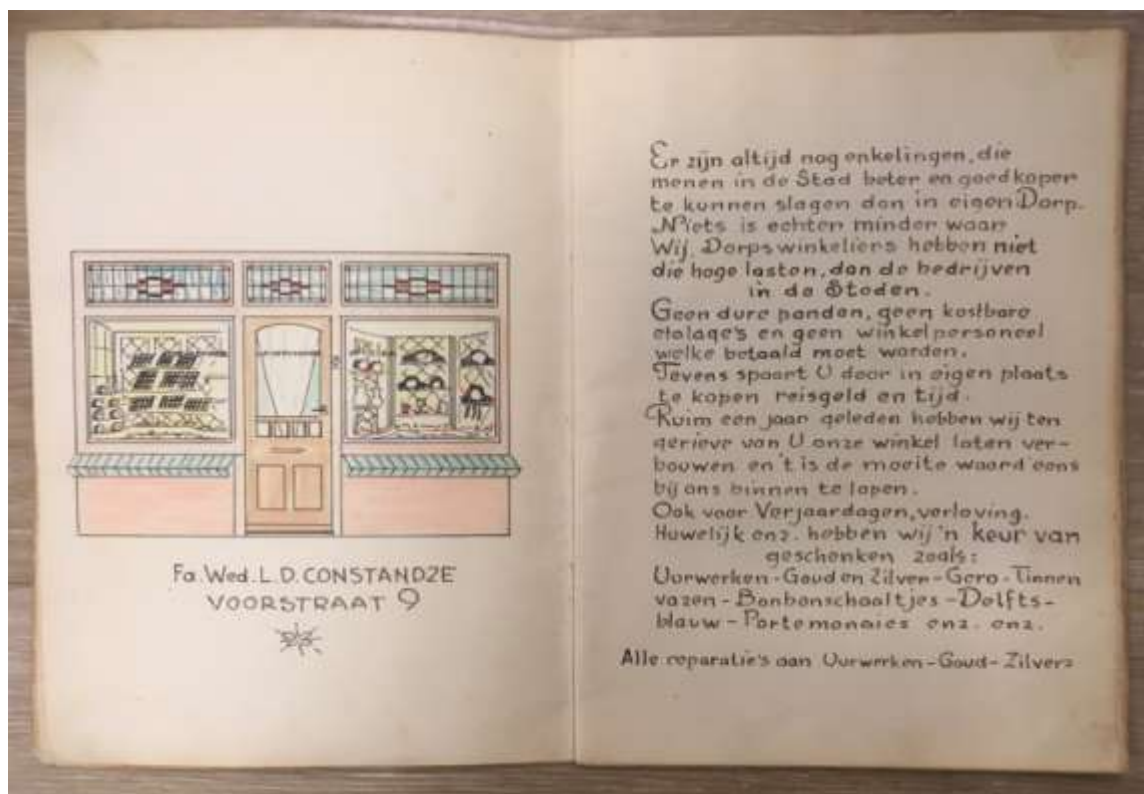 Fa. Wed. L. D. CONSTANDZE
VOORSTRAAT 9
Er zijn altijd nog enkelingen, die
menen in de Stad beter en goedkoper
te kunnen slagen dan in eigen Dorp.
Niets is echter minder waar.
Wij, Dorpswinkeliers hebben niet
die hoge lasten, dan de bedrijven
in de Steden.
Geen dure panden, geen kostbare
etalage's en geen winkelpersoneel
welke betaald moet worden.
Tevens spaart U door in eigen plaats
te kopen reisgeld en tijd.
Ruim een jaar geleden hebben wij ten
gerieve van U onze winkel laten ver-
bouwen en 't is de moeite waard eens
bij ons binnen te lopen.
Ook voor Verjaardagen, verloving.
Huwelijk enz. hebben wij 'n keur van
geschenken zoals:
Uurwerken - Goud en Zilver - Gero - Tinnen
vazen - Bonbonschaaltjes - Delfts-
blauw - Portemonaies enz. enz.
Alle reparatie's aan Uurwerken - Goud - Zilverz